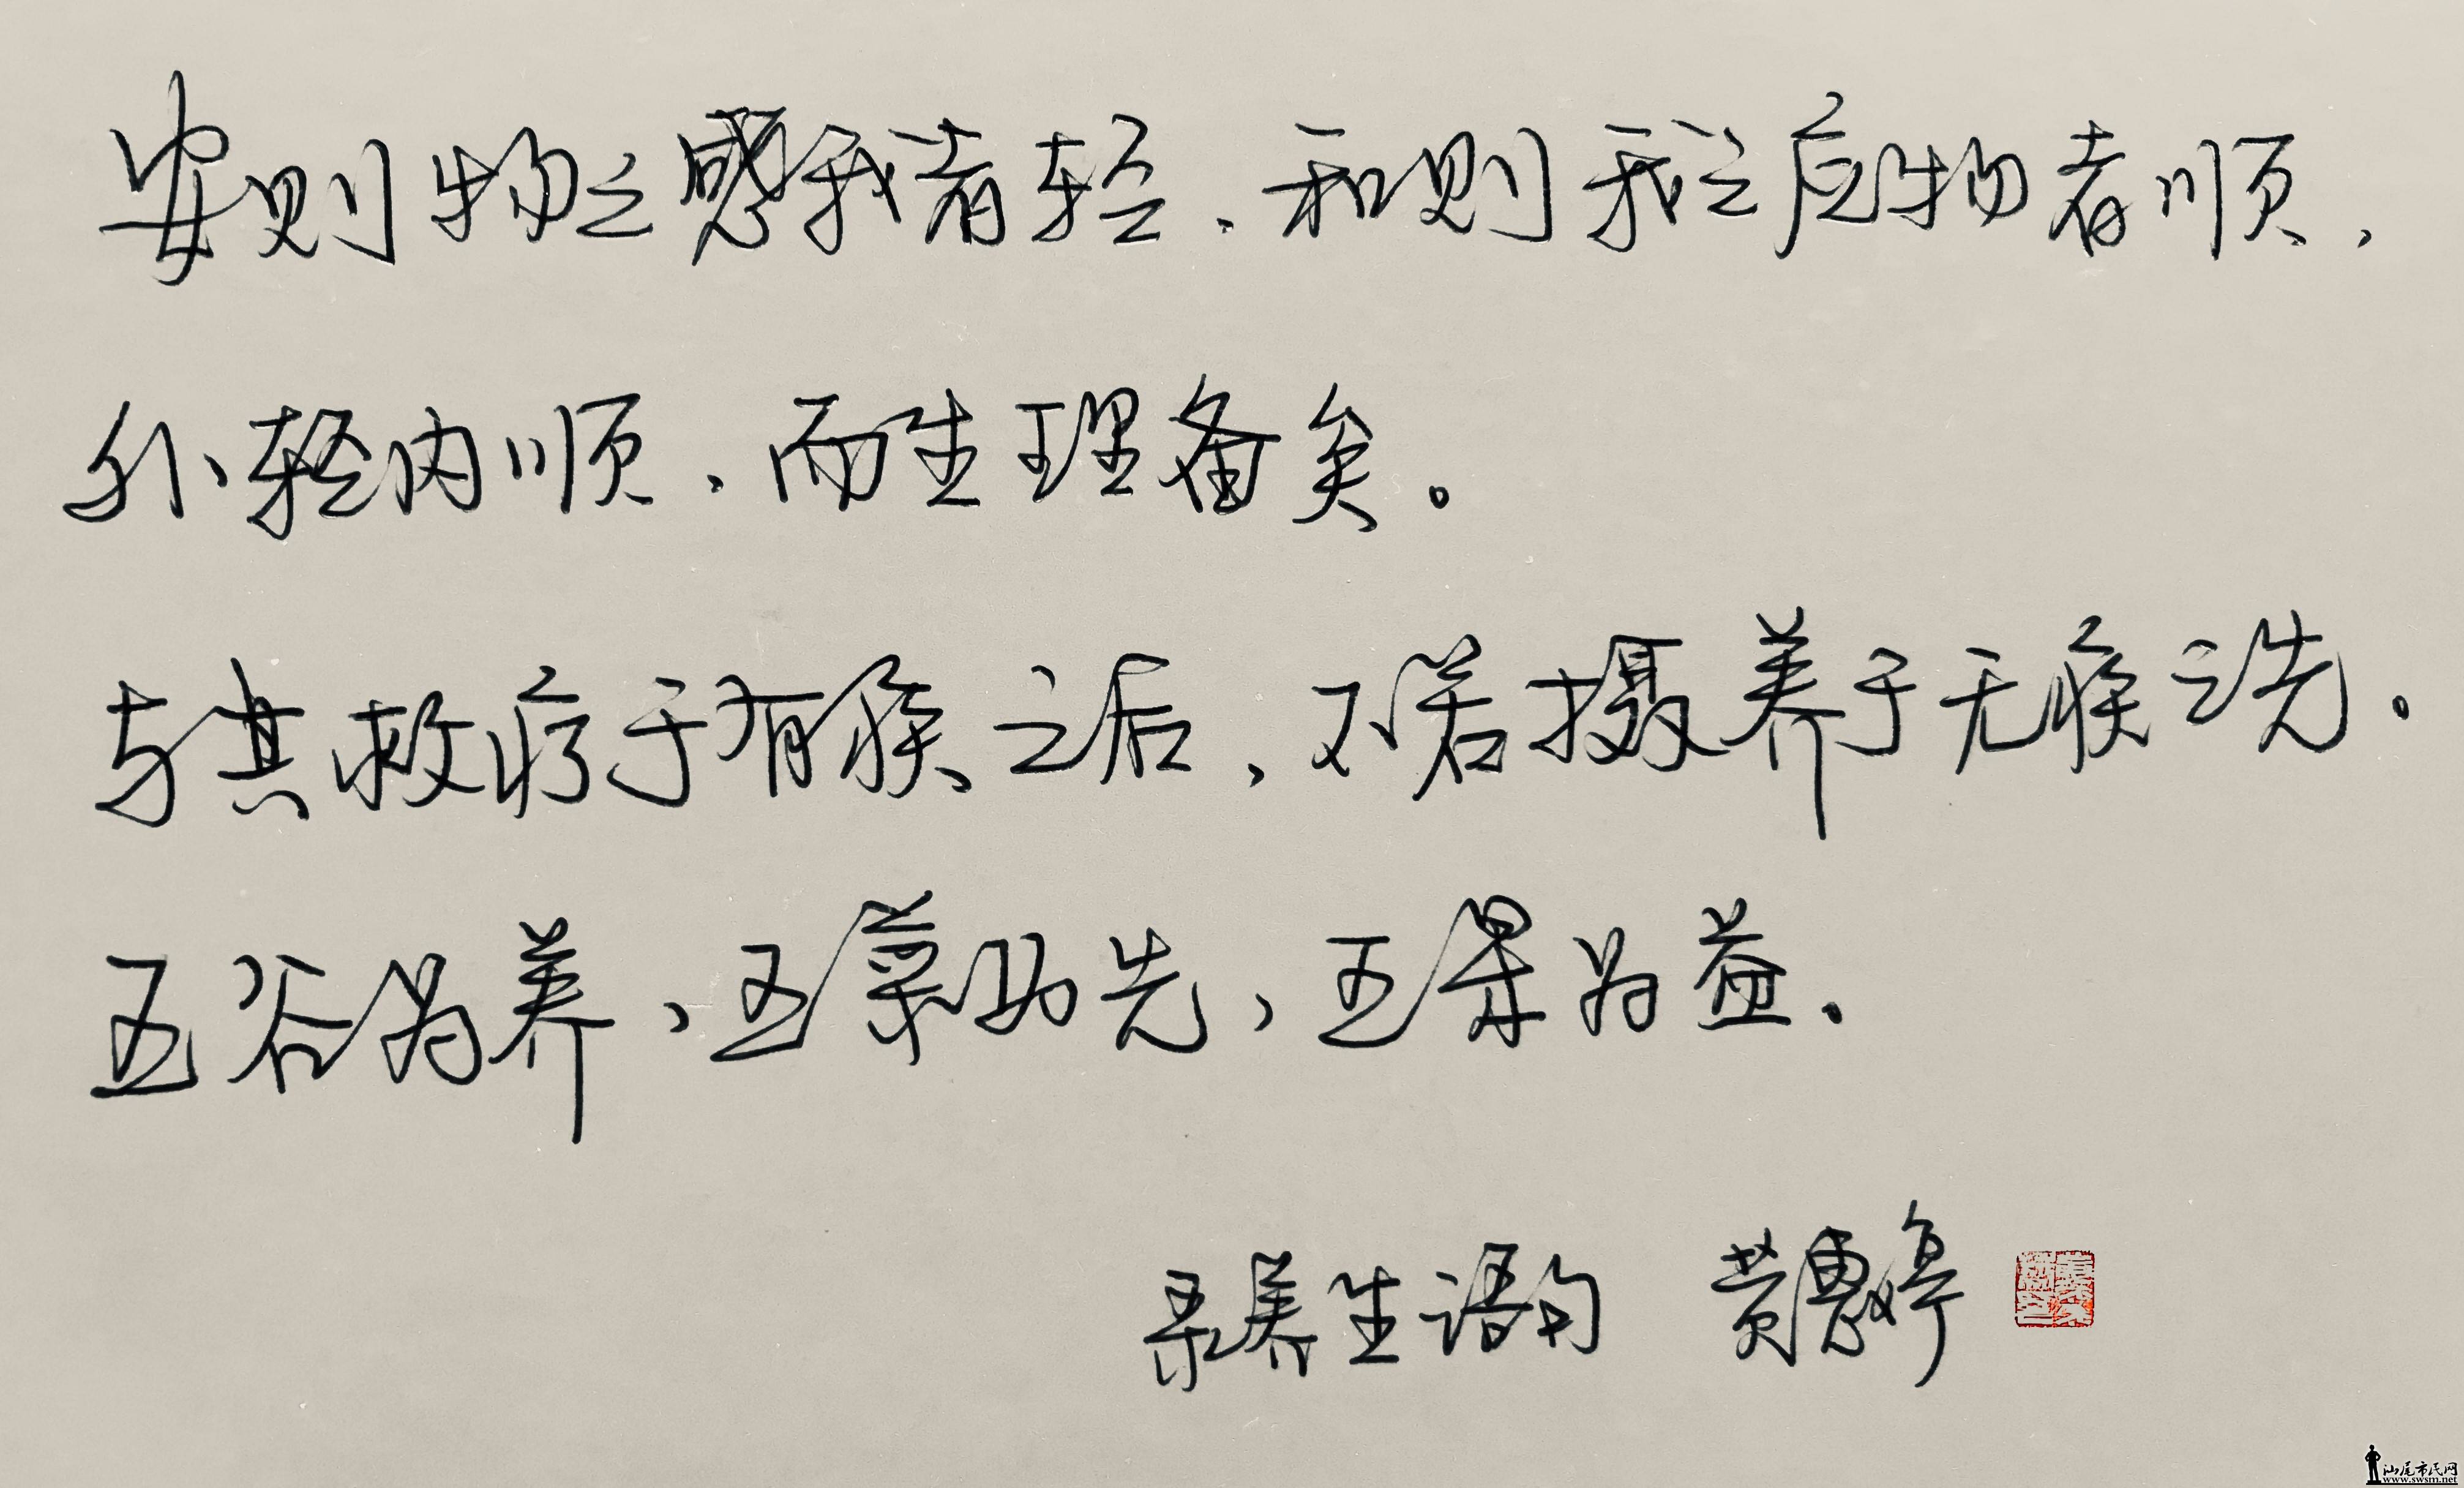 安则物之感我者轻，和则我之应物者顺，
外轻内顺，而生理备矣。
与其救疗于有疾之后，不若摄养于无疾之先。
五谷为养，五菜为先，五果为益。
录养生语句 黄惠婷
汕尾市民网
www.swsm.net